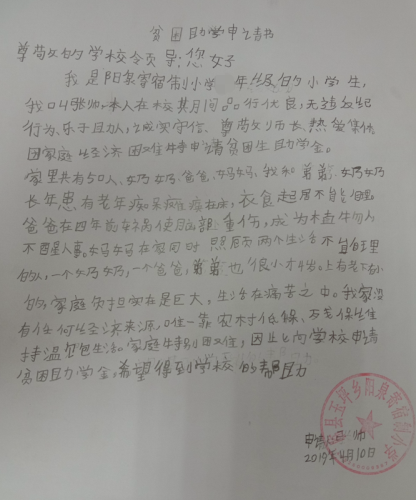 贫困助学申请书
尊敬的学校领导:您好
我是阳泉寄宿制小学 年级的小学生,
我叫张帅,本人在校其月间品行优良,无违反纪
行为、乐于且力人,诚实守信、尊敬师长,热爱集体
因家庭经济困难特申请贫困生助学金。
家里共有5口人、奶奶、爸爸、妈妈、我和弟弟、奶奶
长年患有老年痴呆症瘫在床,衣食起居不能自理
爸爸在四年前车祸使脑部重伤,成为植物人
不醒人事。妈妈在家同时照顾两个生活不能自理
的人,一个奶奶,一个爸爸,弟弟也很小才4岁。上有老下有小
的家庭负担实在是巨大,生活在痛苦之中。我家没
有任何经济来源,唯一靠农村低保、
持温饱生活。家庭特别困难,因此向学校申请
贫困且力学金,希望得到学校的帮且力
申请 帅
2019年4月10日
乡阳泉寄宿制小学